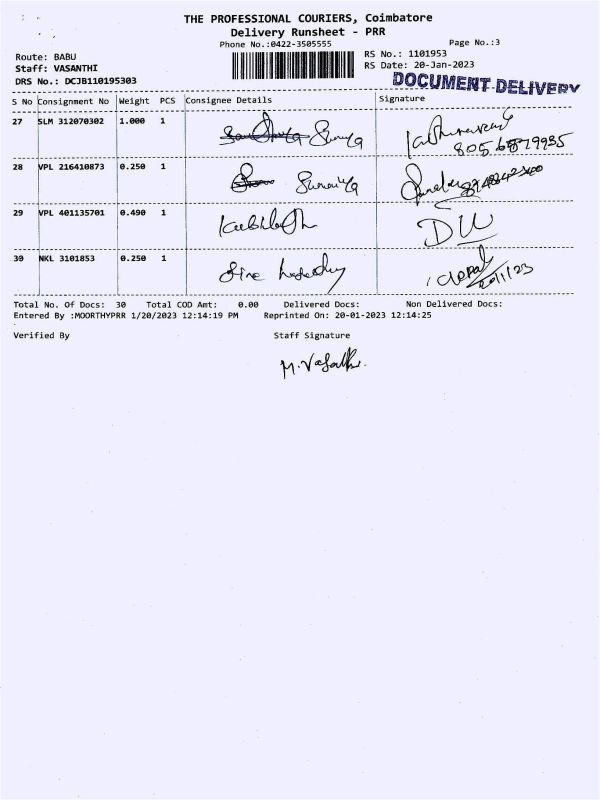 THE PROFESSIONAL COURIERS, Coimbatore
Delivery Runsheet - PRR
Phone No.:0422-3505555
Page No.:3
Route: BABU
RS No.: 1101953
Staff: VASANTHI
RS Date: 20-Jan-2023
DRS No.: DCJB110195303
DOCUMENT DELIVERY
S No Consignment No Weight PCS Consignee Details Signature
27 SLM 312070302 1.000 1
28 VPL 216410873 0.250 1
29 VPL 401135701 0.490 1
30 NKL 3101853 0.250 1
Total No. Of Docs: 30 Total COD Amt: 0.00 Delivered Docs: Non Delivered Docs:
Entered By :MOORTHYPRR 1/20/2023 12:14:19 PM Reprinted On: 20-01-2023 12:14:25
Verified By Staff Signature